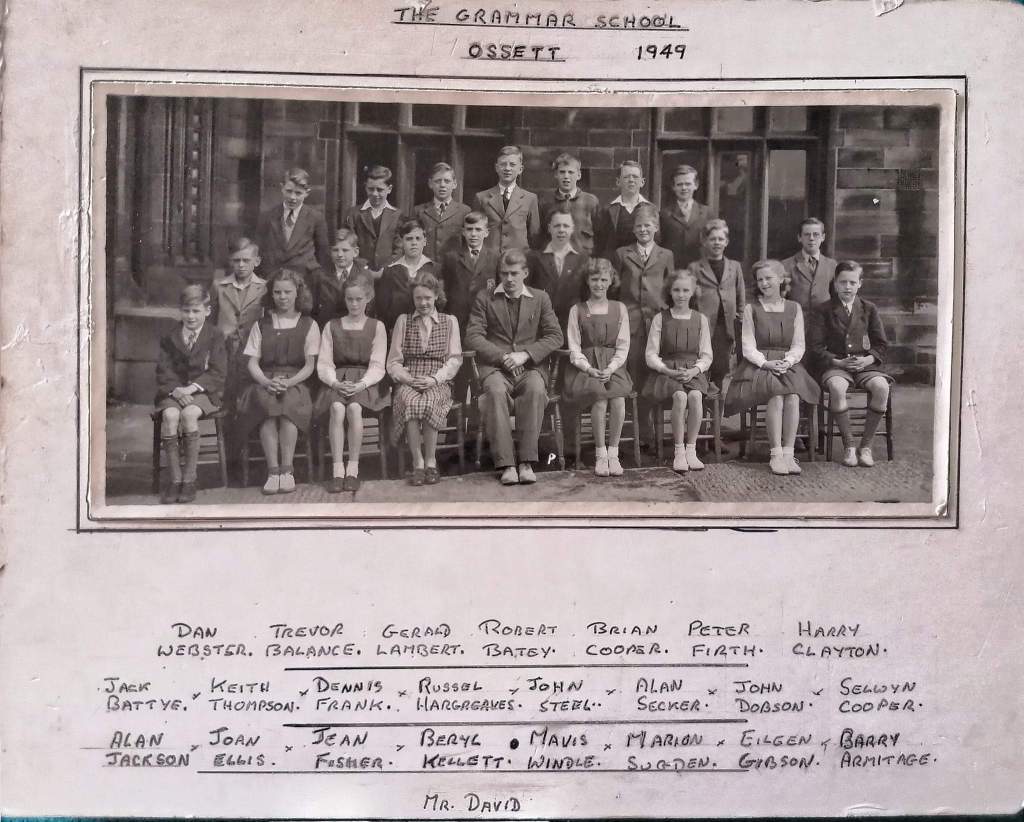 THE GRAMMAR SCHOOL
OSSETT 1949
P
DAN TREVOR GERALD ROBERT BRIAN PETER HARRY
WEBSTER. BALANCE. LAMBERT. BATEY. COOPER. FIRTH. CLAYTON.
JACK KEITH DENNIS RUSSEL JOHN ALAN JOHN SELWYN
BATTYE. THOMPSON. FRANK. HARGREAVES. STEEL.. SECKER. DOBSON. COOPER.
ALAN JOAN JEAN BERYL MAVIS MARION EILEEN BARRY
JACKSON ELLIS. FISHER. KELLETT. WINDLE. SUGDEN. GIBSON. ARMITAGE.
MR. DAVID